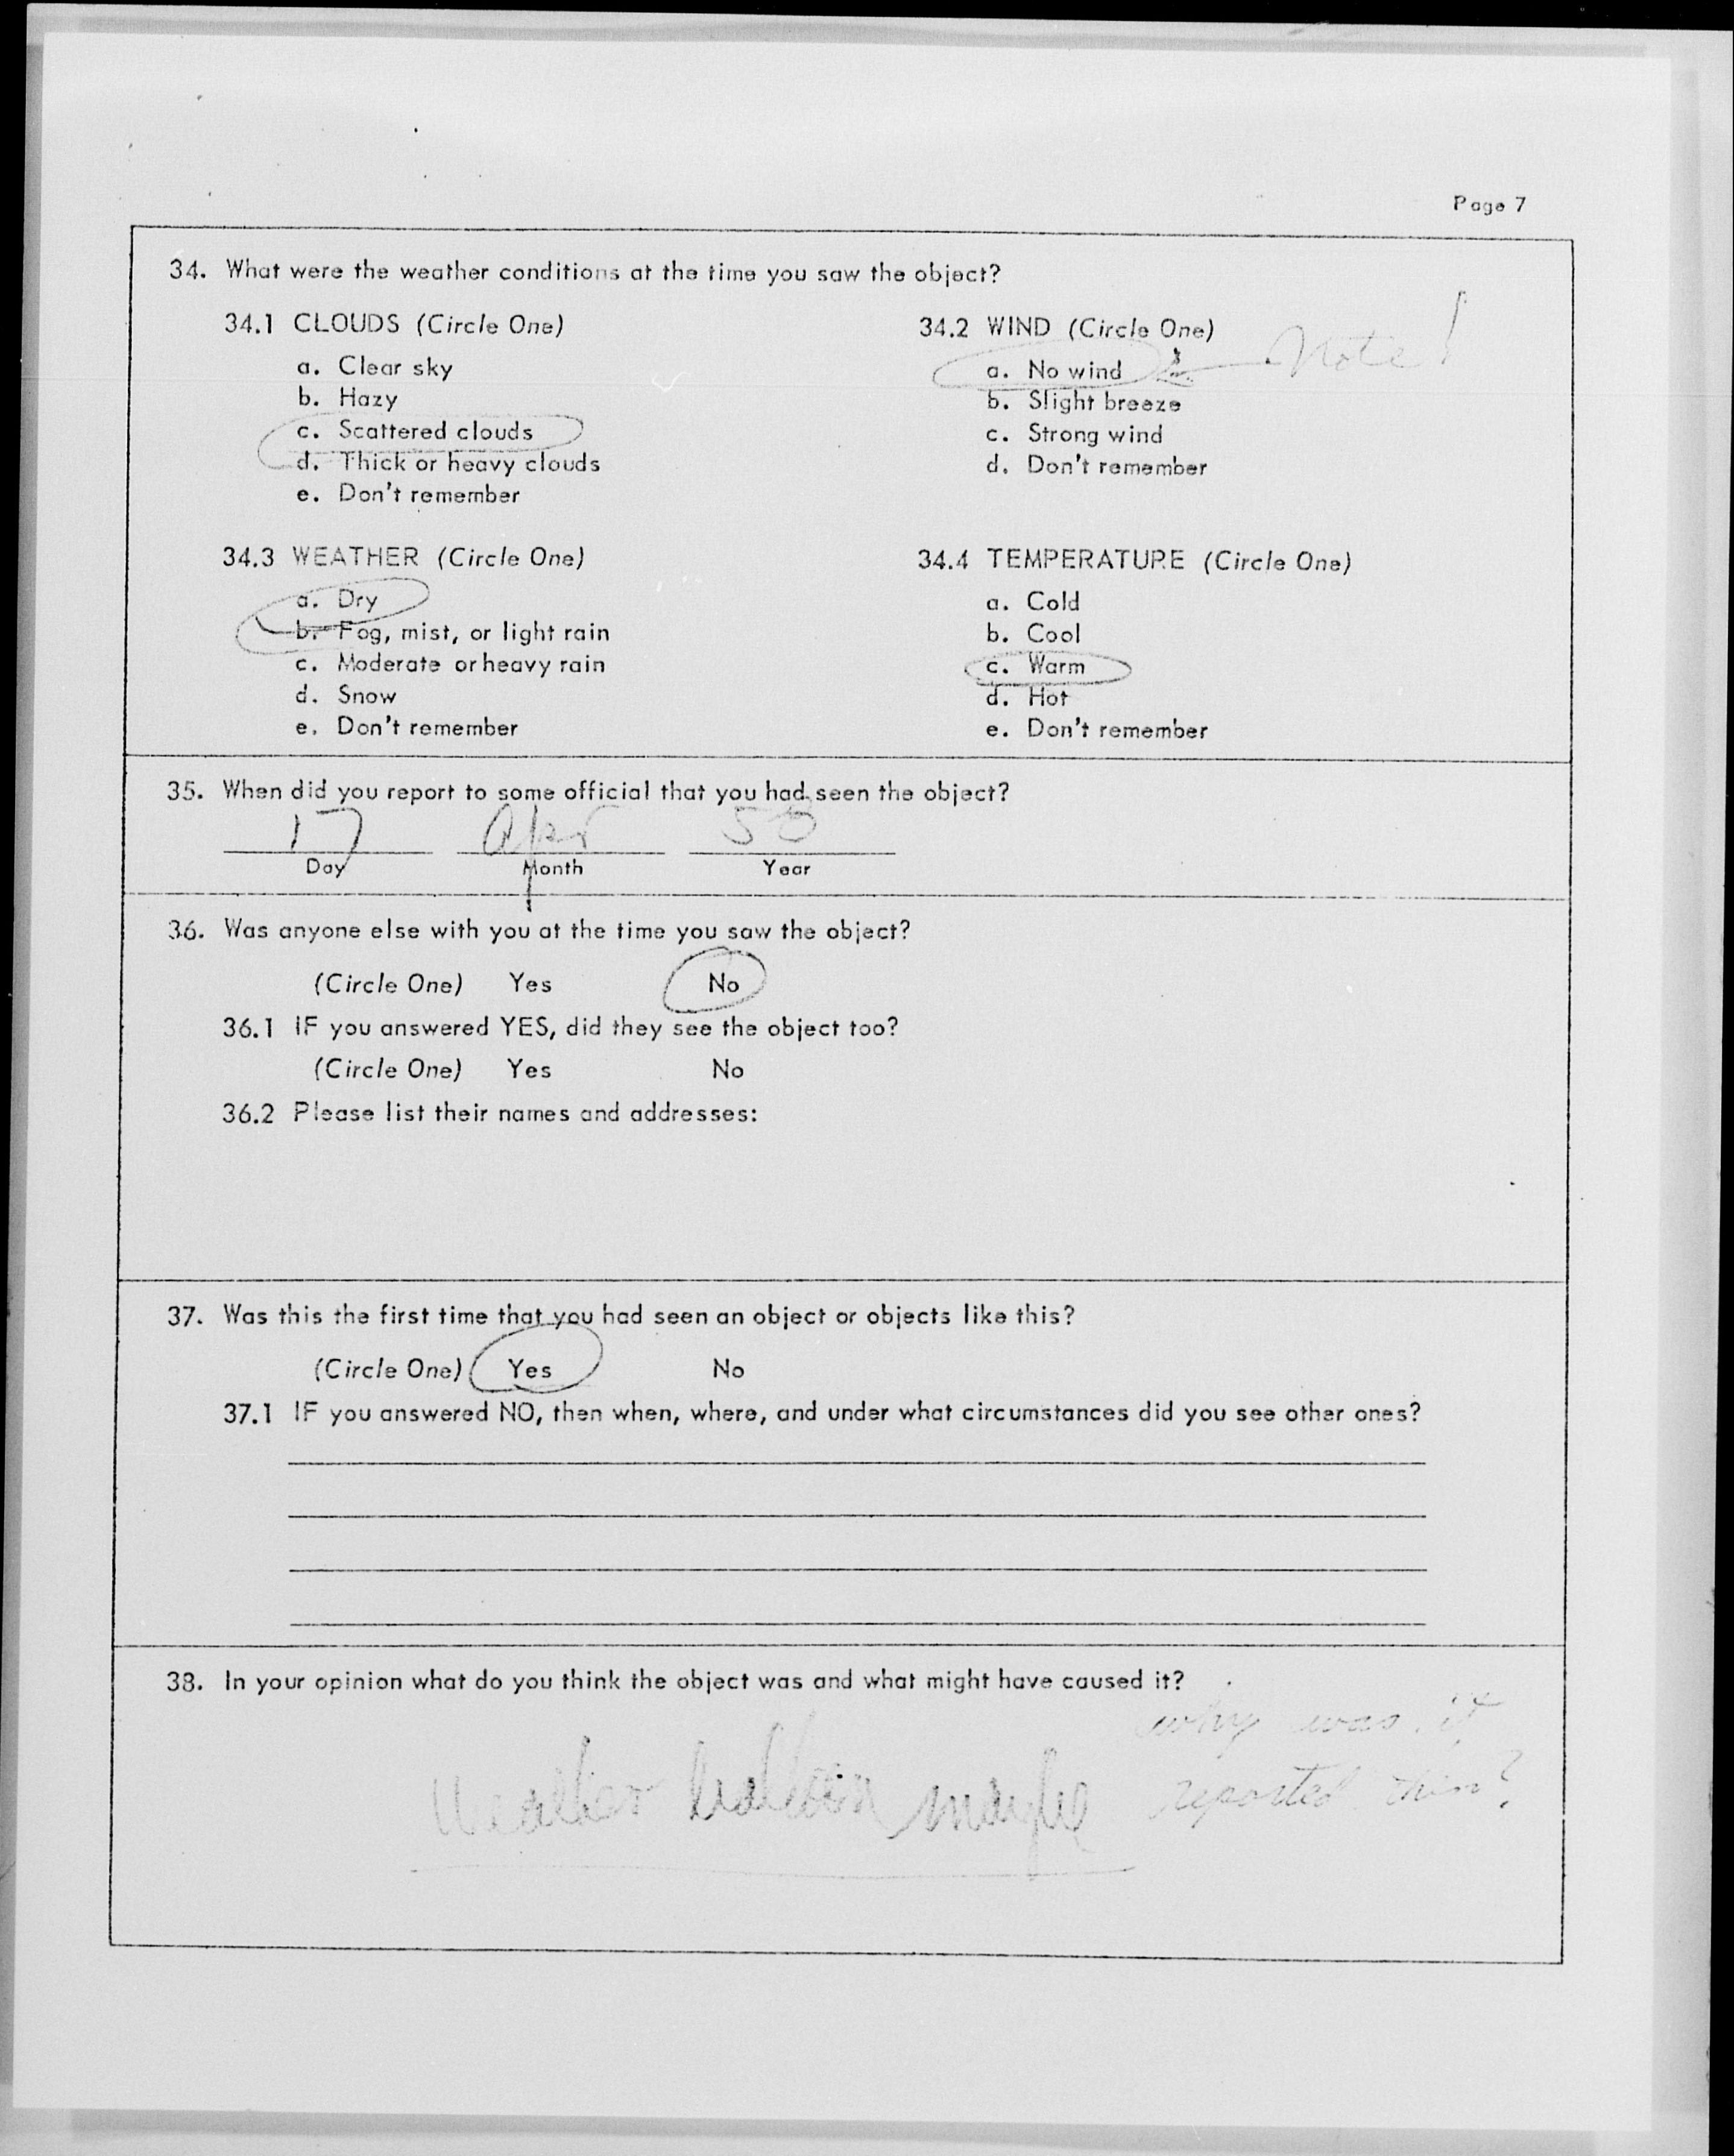 Page 7
34. What were the weather conditions at the time you saw the object?
34.1 CLOUDS (Circle One)
a. Clear sky
b. Hazy
c. Scattered clouds
d. Thick or heavy clouds
e. Don't remember
34.2 WIND (Circle One)
a. No wind Note!
b. Slight breeze
c. Strong wind
d. Don't remember
34.3 WEATHER (Circle One)
a. Dry
b. Fog, mist, or light rain
c. Moderate or heavy rain
d. Snow
e. Don't remember
34.4 TEMPERATURE (Circle One)
a. Cold
b. Cool
c. Warm
d. Hot
e. Don't remember
35. When did you report to some official that you had seen the object?
17 Apr 58
Day Month Year
36. Was anyone else with you at the time you saw the object?
(Circle One) Yes No
36.1 IF you answered YES, did they see the object too?
(Circle One) Yes No
36.2 Please list their names and addresses:
37. Was this the first time that you had seen an object or objects like this?
(Circle One) Yes No
37.1 IF you answered NO, then when, where, and under what circumstances did you see other ones?
38. In your opinion what do you think the object was and what might have caused it?
why was it
Weather balloon maybe reported then?